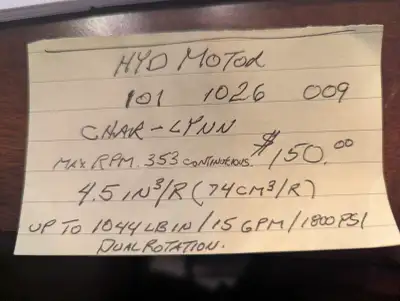 HYD MOTOR
101 1026 009
CHAR-LYNN
MAX RPM. 353 CONTINEOUS. $150.00
4.5 IN³/R (74CM³/R)
UP TO 1044 LBIN/15 GPM/1800 PSI
DUAL ROTATION.